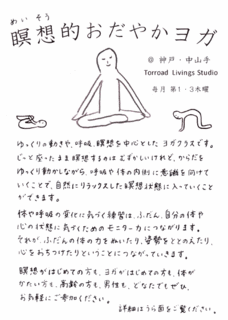 めい そう
瞑想的おだやかヨガ
@ 神戸・中山手
Torroad Livings Studio
毎月 第1・3木曜
ゆっくりの動きや、呼吸、瞑想を中心としたヨガクラスです。
じっと座ったまま瞑想するのはむずかしいけれど、からだを
ゆっくり動かしながら、呼吸や体の内側に意識を向けて
いくことで、自然にリラックスした瞑想状態に入っていくこと
ができます。
体や呼吸の変化に気づく練習は、ふだん、自分の体や
心の状態に気づくためのモニターカにつながります。
それが、ふだんの体の力をぬいたり、姿勢をととのえたり、
心をおちつけたりということにつながっていきます。
瞑想がはじめての方も、ヨガがはじめての方も、体が
かたい方も、高齢の方も、男性も、どなたでもぜひ、
お気軽にご参加ください。
詳細はうら面をご覧ください。